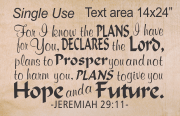 Single Use Text area 14x24"
For I know the PLANS I have
for You, DECLARES the Lord,
plans to Prosper you and not
to harm you, PLANS to give you
Hope and a Future.
-JEREMIAH 29:11-